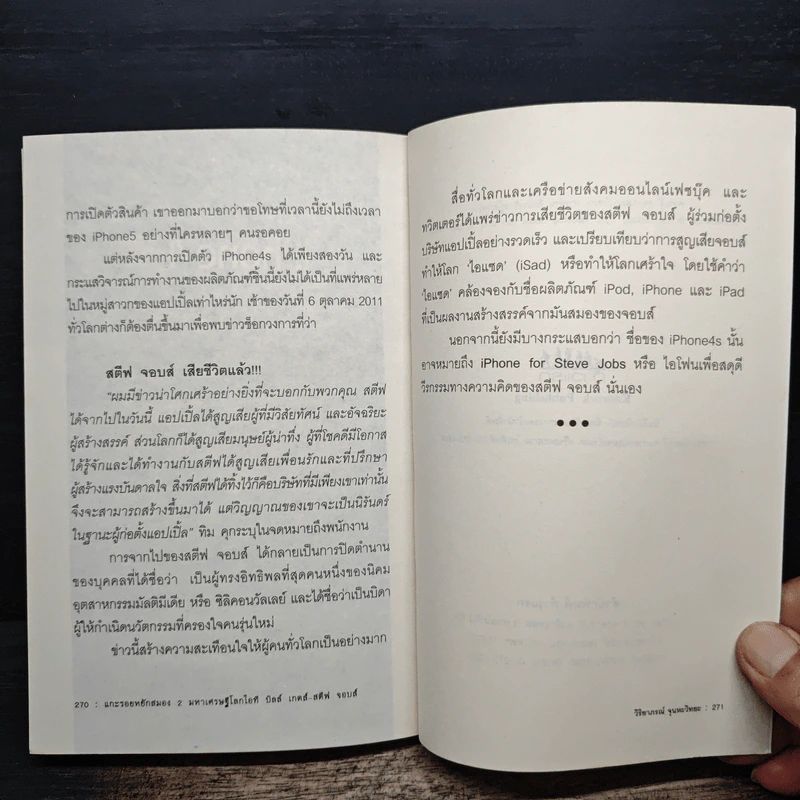 การเปิดตัวสินค้า เขาออกมาบอกว่าขอโทษที่เวลานี้ยังไม่ถึงเวลา
ของ iPhone5 อย่างที่ใครหลายๆ คนรอคอย
แต่หลังจากการเปิดตัว iPhone4s ได้เพียงสองวัน และ
กระแสวิจารณ์การทำงานของผลิตภัณฑ์ชิ้นนี้ยังไม่ได้เป็นที่แพร่หลาย
ไปในหมู่สาวกของแอปเปิ้ลเท่าไหร่นัก เช้าของวันที่ 6 ตุลาคม 2011
ทั่วโลกต่างก็ต้องตื่นขึ้นมาเพื่อพบข่าวช็อกวงการที่ว่า
สตีฟ จอบส์ เสียชีวิตแล้ว!!!
"ผมมีข่าวน่าโศกเศร้าอย่างยิ่งที่จะบอกกับพวกคุณ สตีฟ
ได้จากไปในวันนี้ แอปเปิ้ลได้สูญเสียผู้ที่มีวิสัยทัศน์ และอัจฉริยะ
ผู้สร้างสรรค์ ส่วนโลกก็ได้สูญเสียมนุษย์ผู้น่าทึ่ง ผู้ที่โชคดีมีโอกาส
ได้รู้จักและได้ทำงานกับสตีฟได้สูญเสียเพื่อนรักและที่ปรึกษา
ผู้สร้างแรงบันดาลใจ สิ่งที่สตีฟได้ทิ้งไว้ก็คือบริษัทที่มีเพียงเขาเท่านั้น
จึงจะสามารถสร้างขึ้นมาได้ แต่วิญญาณของเขาจะเป็นนิรันดร์
ในฐานะผู้ก่อตั้งแอปเปิ้ล" ทิม คุกระบุในจดหมายถึงพนักงาน
การจากไปของสตีฟ จอบส์ ได้กลายเป็นการปิดตำนาน
ของบุคคลที่ได้ชื่อว่า เป็นผู้ทรงอิทธิพลที่สุดคนหนึ่งของนิคม
อุตสาหกรรมมัลติมีเดีย หรือ ซิลิคอนวัลเลย์ และได้ชื่อว่าเป็นบิดา
ผู้ให้กำเนิดนวัตกรรมที่ครองใจคนรุ่นใหม่
ข่าวนี้สร้างความสะเทือนใจให้ผู้คนทั่วโลกเป็นอย่างมาก
270 : แกะรอยหยักสมอง 2 มหาเศรษฐีโลกไอที บิลล์ เกตส์-สตีฟ จอบส์
สื่อทั่วโลกและเครือข่ายสังคมออนไลน์เฟซบุ๊ค และ
ทวิตเตอร์ได้แพร่ข่าวการเสียชีวิตของสตีฟ จอบส์ ผู้ร่วมก่อตั้ง
บริษัทแอปเปิ้ลอย่างรวดเร็ว และเปรียบเทียบว่าการสูญเสียจอบส์
ทำให้โลก 'ไอแซด' (iSad) หรือทำให้โลกเศร้าใจ โดยใช้คำว่า
'ไอแซด' คล้องจองกับชื่อผลิตภัณฑ์ iPod, iPhone และ iPad
ที่เป็นผลงานสร้างสรรค์จากมันสมองของจอบส์
นอกจากนี้ยังมีบางกระแสบอกว่า ชื่อของ iPhone4s นั้น
อาจหมายถึง iPhone for Steve Jobs หรือ ไอโฟนเพื่อสดุดี
วีรกรรมทางความคิดของสตีฟ จอบส์ นั่นเอง
●●●
วิริยาภรณ์ จุนหะวิทยะ : 271